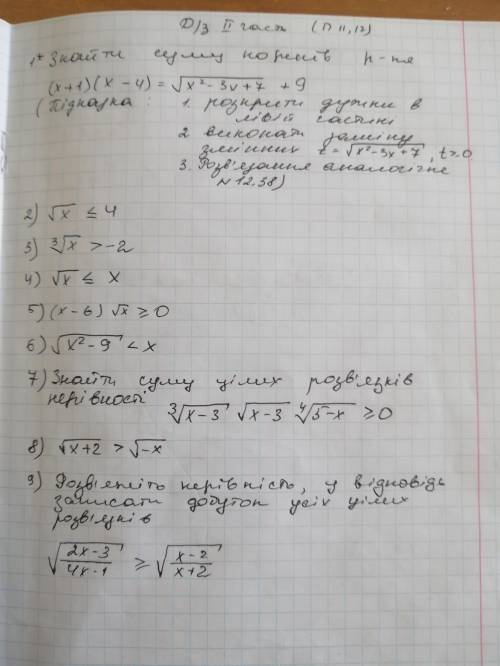 Д/З II часть (П 11, 12)
1* Знайти суму коренів р-ня
(x+1)(x-4) = √(x²-3x+7) + 9
(Підказка: 1. розкрити дужки в
лівій частині
2 виконати заміну
змінних t = √(x²-3x+7), t≥0
3. Розв'язання аналогічне
N 12.38)
2) √x ≤ 4
3) ∛x > -2
4) √x ≤ x
5) (x-6) √x ≥ 0
6) √(x²-9) < x
7) Знайти суму цілих розв'язків
нерівності
∛(x-3) √(x-3) ∜(5-x) ≥ 0
8) √(x+2) > √(-x)
9) Розв'яжіть нерівність, у відповідь
записати добуток усіх цілих
розв'язків
√((2x-3)/(4x-1)) ≥ √((x-2)/(x+2))